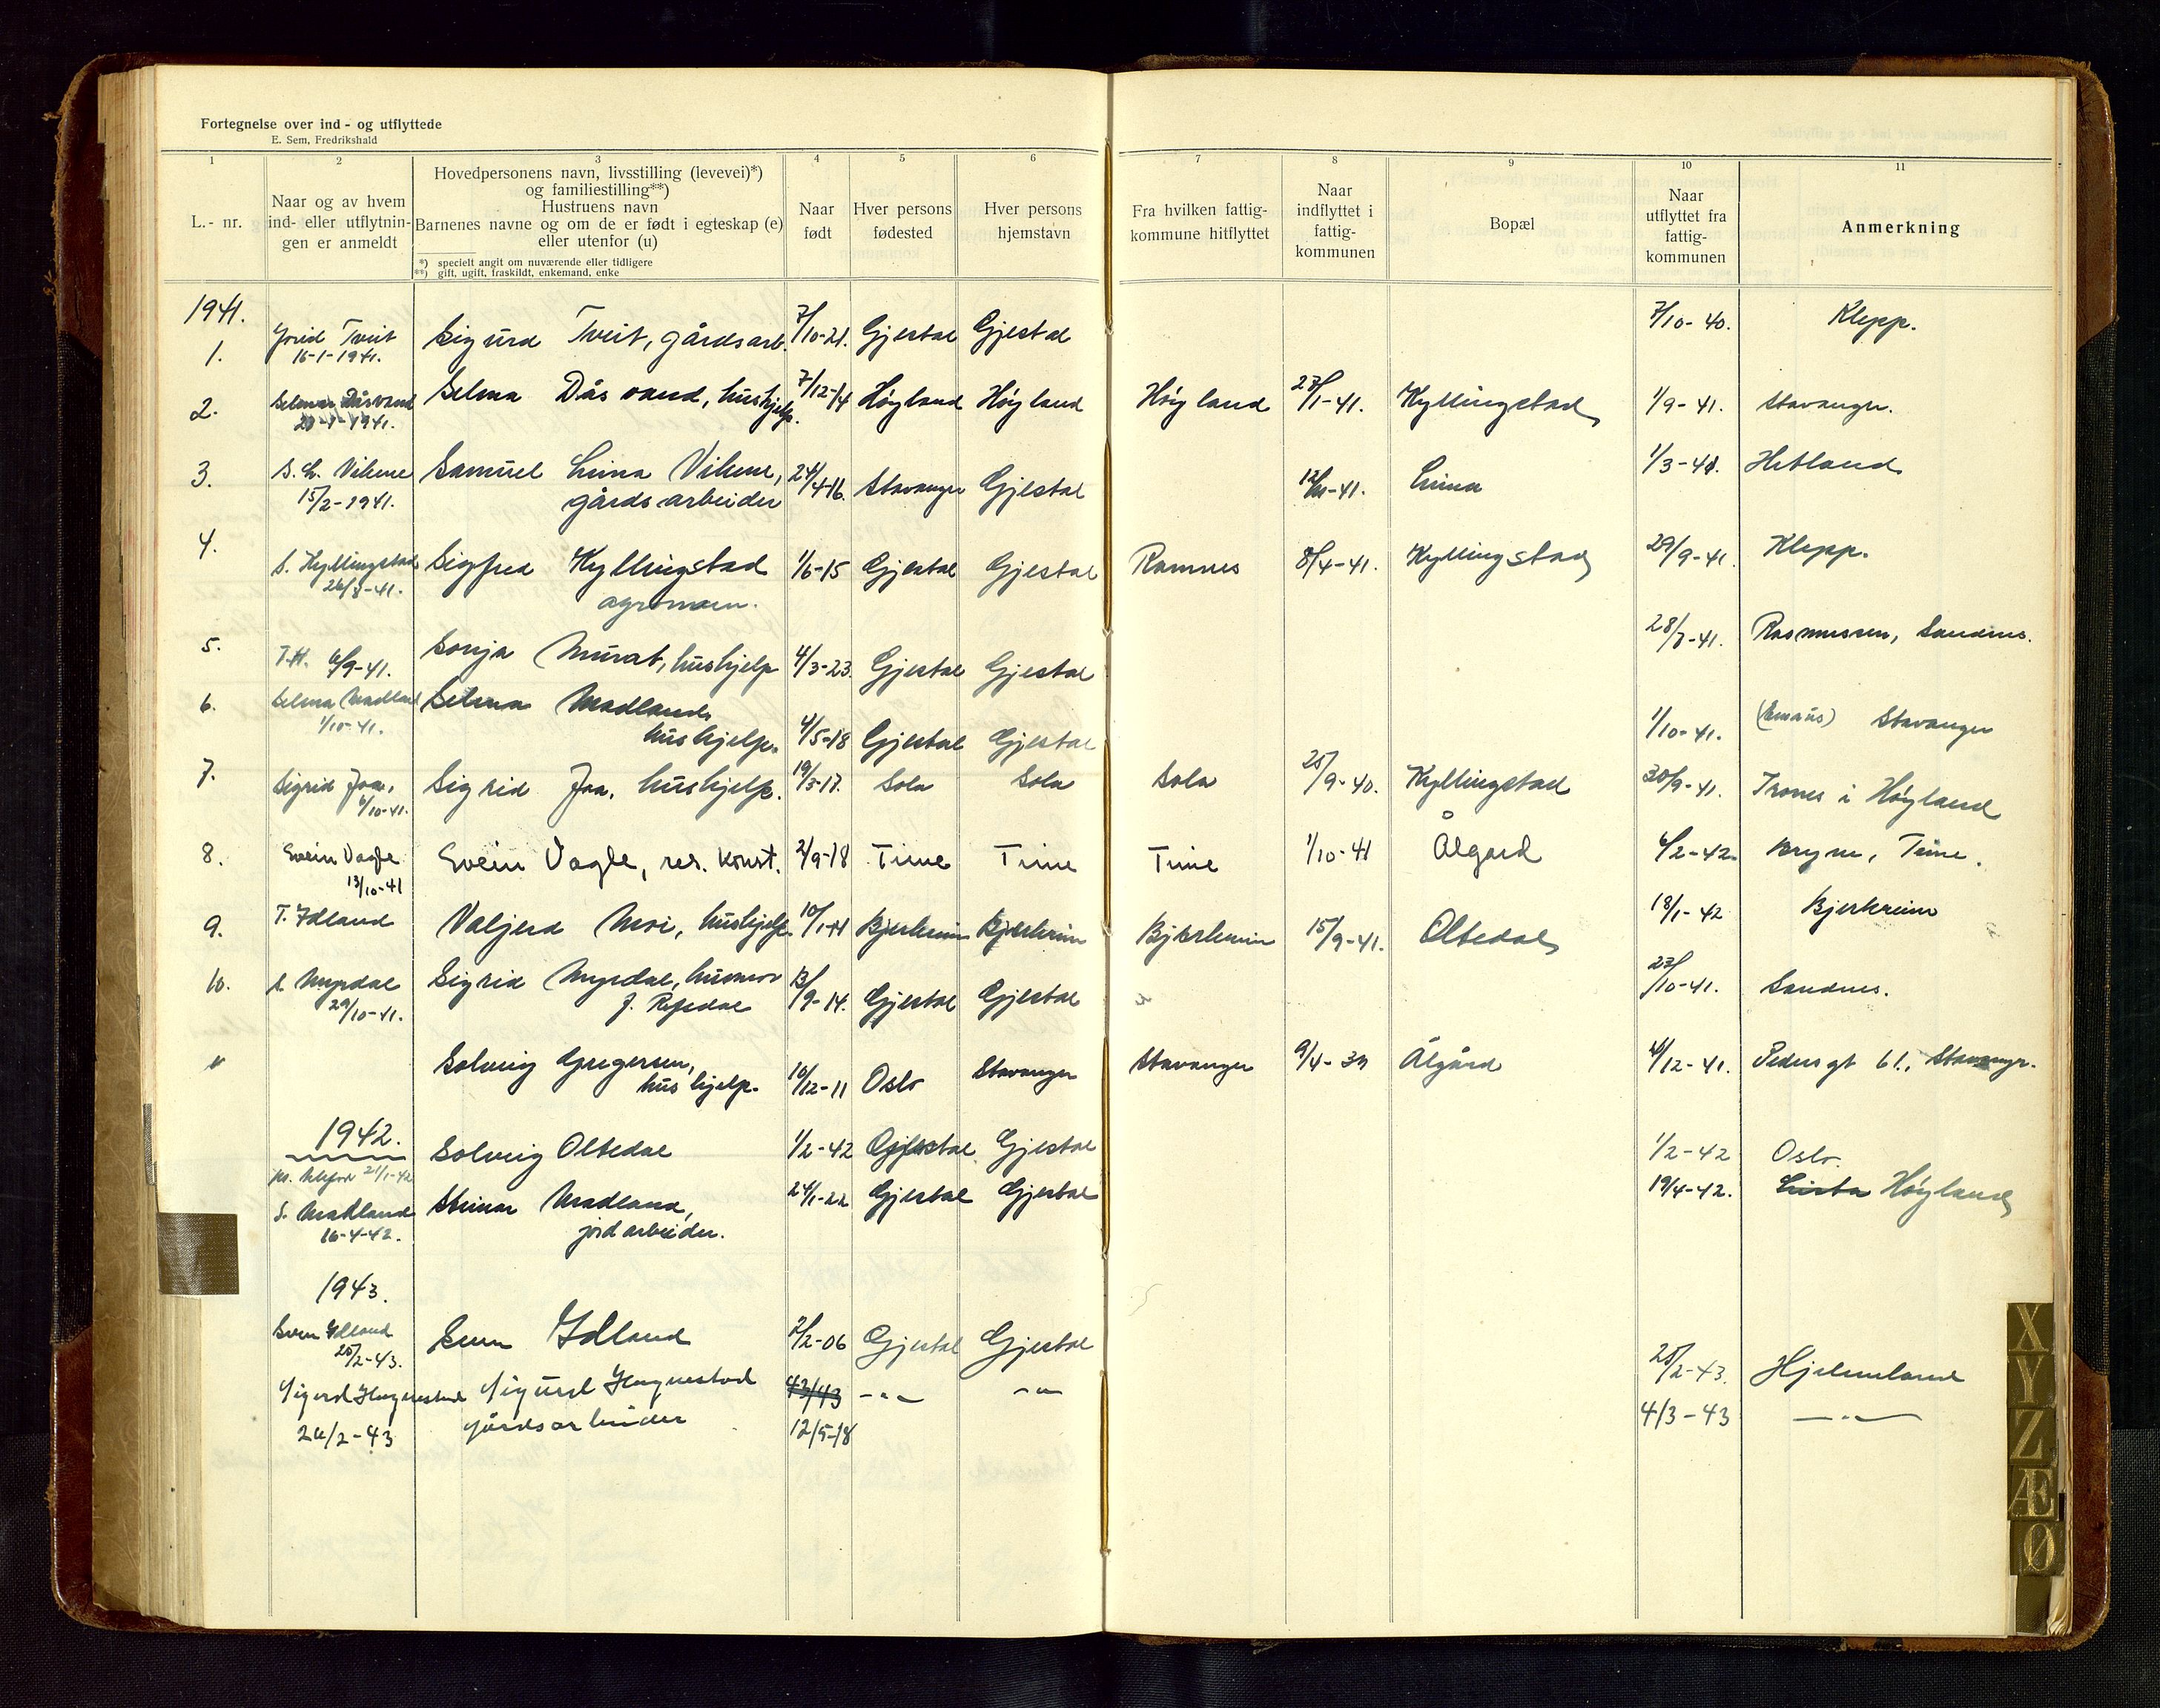 Fortegnelse over ind- og utflyttede
E. Sem, Fredrikshald
1 2 3 4 5 6 7 8 9 10 11
L.- nr.
Naar og av hvem
ind- eller utflytnin-
gen er anmeldt
Hovedpersonens navn, livsstilling (levevei)*)
og familiestilling**)
Hustruens navn
Barnenes navne og om de er født i egteskap (e)
eller utenfor (u)
*) specielt angit om nuværende eller tidligere
**) gift, ugift, fraskildt, enkemand, enke
Naar
født
Hver persons
fødested
Hver persons
hjemstavn
Fra hvilken fattig-
kommune hitflyttet
Naar
indflyttet i
fattig-
kommunen
Bopæl
Naar
utflyttet fra
fattig-
kommunen
Anmerkning
1941.
1. Tveit Sigurd Tveit, gårdsarb. 7/10-21. Gjestal Gjestal 7/10-40. Klepp.
16-1-1941.
2. Selma Dåsvand Selma Dåsvand, hushjelp. 7/12-14 Høyland Høyland Høyland 27/1-41. Kyllingstad 1/9-41. Stavanger.
3. S. L. Vilune Samuel Lima Vilune, 24/4-16. Stavanger Gjestal Lima 1/3-41. Hetland
15/2-1941. gårdsarbeider
4. S. Kyllingstad Sigfred Kyllingstad 1/6-15 Gjestal Gjestal Ramnes 8/4-41. Kyllingstad 29/9-41. Klepp.
26/8-41. agronom.
5. T.H. 6/9-41. Sonja Murat, hushjelp 4/3-23. Gjestal Gjestal 28/8-41. Rasmussen, Sandnes.
6. Selma Madland Selma Madland,
1/10-41. hushjelp. 4/5-18 Gjestal Gjestal 1/10-41. (Emaus) Stavanger
7. Sigrid Joa, Sigrid Joa, hushjelp. 19/3-17. Sola Sola Sola 25/9-40. Kyllingstad 30/9-41. Trones i Høyland
6/10-41.
8. Svein Vagle Svein Vagle, res. konst. 2/9-18 Time Time Time 1/10-41 Ålgård 6/2-42. Bryne, Time.
13/10-41
9. T. Idland Valjerd Moi, hushjelp. Bjerkreim Bjerkreim Bjerkreim 15/9-41. Oltedal 18/1-42 Bjerkreim
10. S. Myrdal Sigrid Myrdal, husmor 13/9-14. Gjestal Gjestal 27/10-41. Sandnes.
29/10-41. f. Refsdal
" Solveig Gregersen, 10/12-11 Oslo Stavanger Stavanger 9/4-39 Ålgård 4/12-41. Pedersgt 61., Stavanger.
hushjelp.
1942.
21/1-42 Solveig Oltedal 1/2-42 Gjestal Gjestal 1/2-42 Oslo.
S. Madland Steinar Madland, 24/1-22 Gjestal Gjestal 19/4-42. Lista Høyland
16-4-42. jordarbeider.
1943.
Sven Idland Sven Idland 2/2-06 Gjestal Gjestal 25/2-43. Hjelmeland
25/2-43.
Sigurd Haugnestad Sigurd Haugnestad 43/43 -"- -"- 4/3-43 -"-
24/2-43 gårdsarbeider 12/5-18
X
Y
Z
Æ
Ø